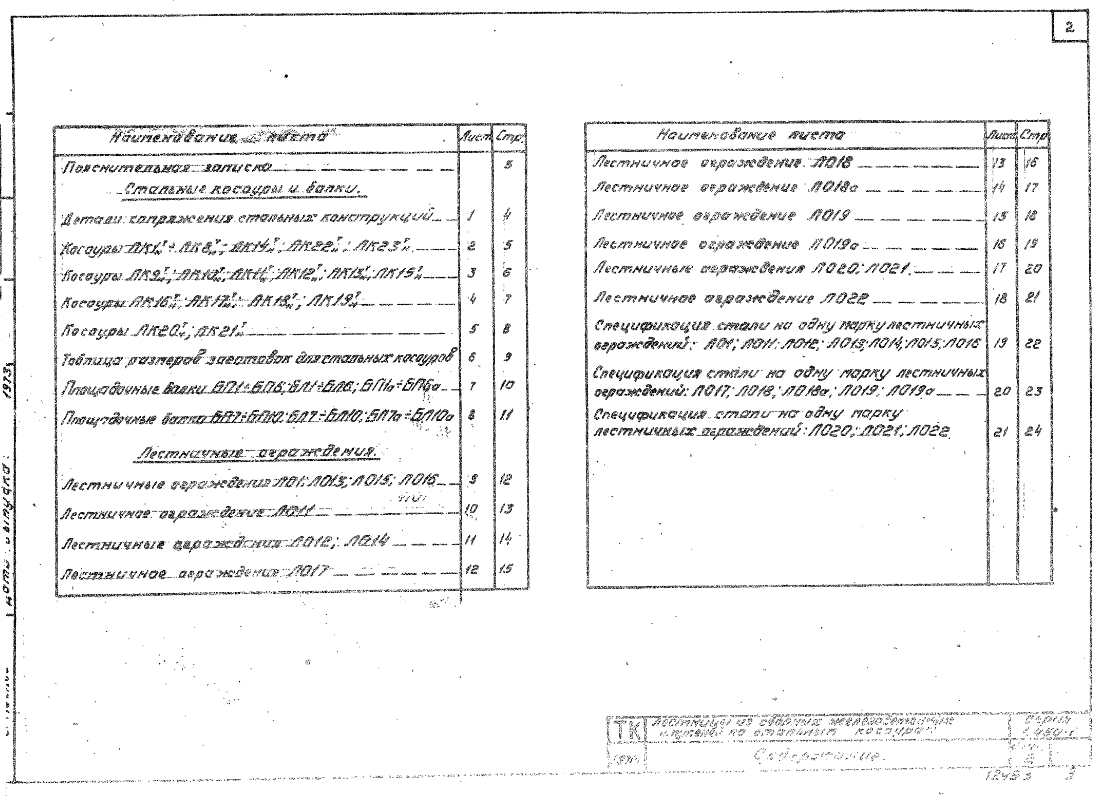 2
Наименование листа Лист Стр.
Пояснительная записка 3
Стальные косоуры и балки.
Детали сопряжения стальных конструкций 1 4
Косоуры 2 5
Косоуры 3 6
Косоуры 4 7
Косоуры 5 8
Таблица размеров заготовок для стальных косоуров 6 9
Площадочные балки БП1÷БП6; БЛ1÷БЛ6; БЛ1а÷БЛ6а 7 10
Площадочные балки БП7÷БП10; БЛ7÷БЛ10; БЛ7а÷БЛ10а 8 11
Лестничные ограждения.
Лестничные ограждения ЛО1; ЛО13; ЛО15; ЛО16 9 12
Лестничное ограждение ЛО11 10 13
Лестничные ограждения ЛО12; ЛО14 11 14
Лестничное ограждения ЛО17 12 15
Наименование листа Лист Стр
Лестничное ограждение ЛО18 13 16
Лестничное ограждение ЛО18а 14 17
Лестничное ограждение ЛО19 15 18
Лестничное ограждение ЛО19а 16 19
Лестничные ограждения ЛО20; ЛО21 17 20
Лестничное ограждение ЛО22 18 21
Спецификация стали на одну марку лестничных
ограждений: ЛО1; ЛО11; ЛО12; ЛО13; ЛО14; ЛО15; ЛО16 19 22
Спецификация стали на одну марку лестничных
ограждений: ЛО17; ЛО18; ЛО18а; ЛО19; ЛО19а 20 23
Спецификация стали на одну марку
лестничных ограждений: ЛО20; ЛО21; ЛО22 21 24
выпуска: 1973г
ТК Лестницы из сборных железобетонных Серия
ступеней по стальным косоурам
Содержание.
3